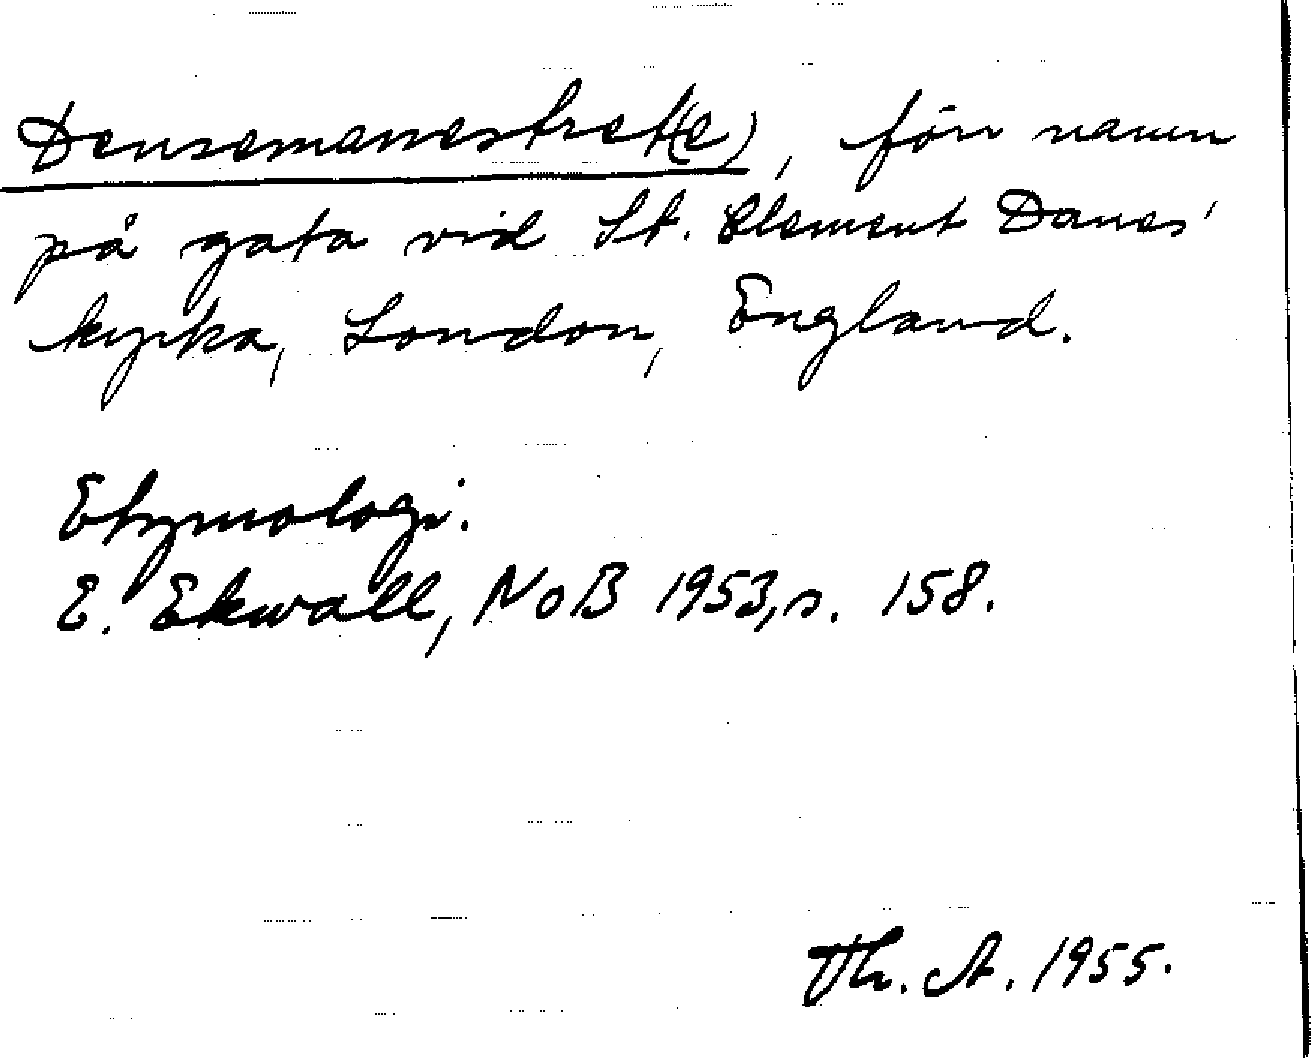 Densemanestret(e), förr namn
på gata vid St. Clement Danes'
kyrka, London, England.
Etymologi.
E. Ekwall, NoB 1953, s. 158.
Th. A. 1955.